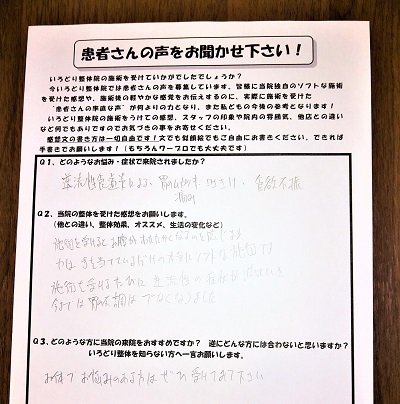 患者さんの声をお聞かせ下さい！
いろどり整体院の施術を受けていかがでしたでしょうか？
今いろどり整体院では患者さんの声を募集しています。皆様に当院独自のソフトな施術
を受けた感想や、施術後の軽やかな感覚をお伝えするのに、実際に施術を受けた
“患者さんの率直な声”が何よりの力となり、また私どもの今後の参考となります！
いろどり整体院の施術をうけての感想、スタッフの印象や院内の雰囲気、他店との違い
など何でもありですのでお気づきの事をお寄せください。
感想文の書き方は一切自由です！文でも似顔絵でもご自由にお書きください。できれば
手書きでお願いします！（もちろんワープロでも大丈夫です）
Q1、どのようなお悩み・症状で来院されましたか？
逆流性食道炎による、胃のムカムカ 食欲不振
Q2、当院の整体を受けた感想をお願いします。
（他との違い、整体効果、オススメ、生活の変化など）
施術を受けると お腹が あたたかくなるのを感じます
施術を受けるたびに 逆流性の
今では 胃の不調は でなくなりました
Q3、どのような方に当院の来院をおすすめですか？ 逆にどんな方には合わないと思いますか？
いろどり整体を知らない方へ一言お願いします。
お体で お悩みのある方は ぜひ 受けてみて下さい